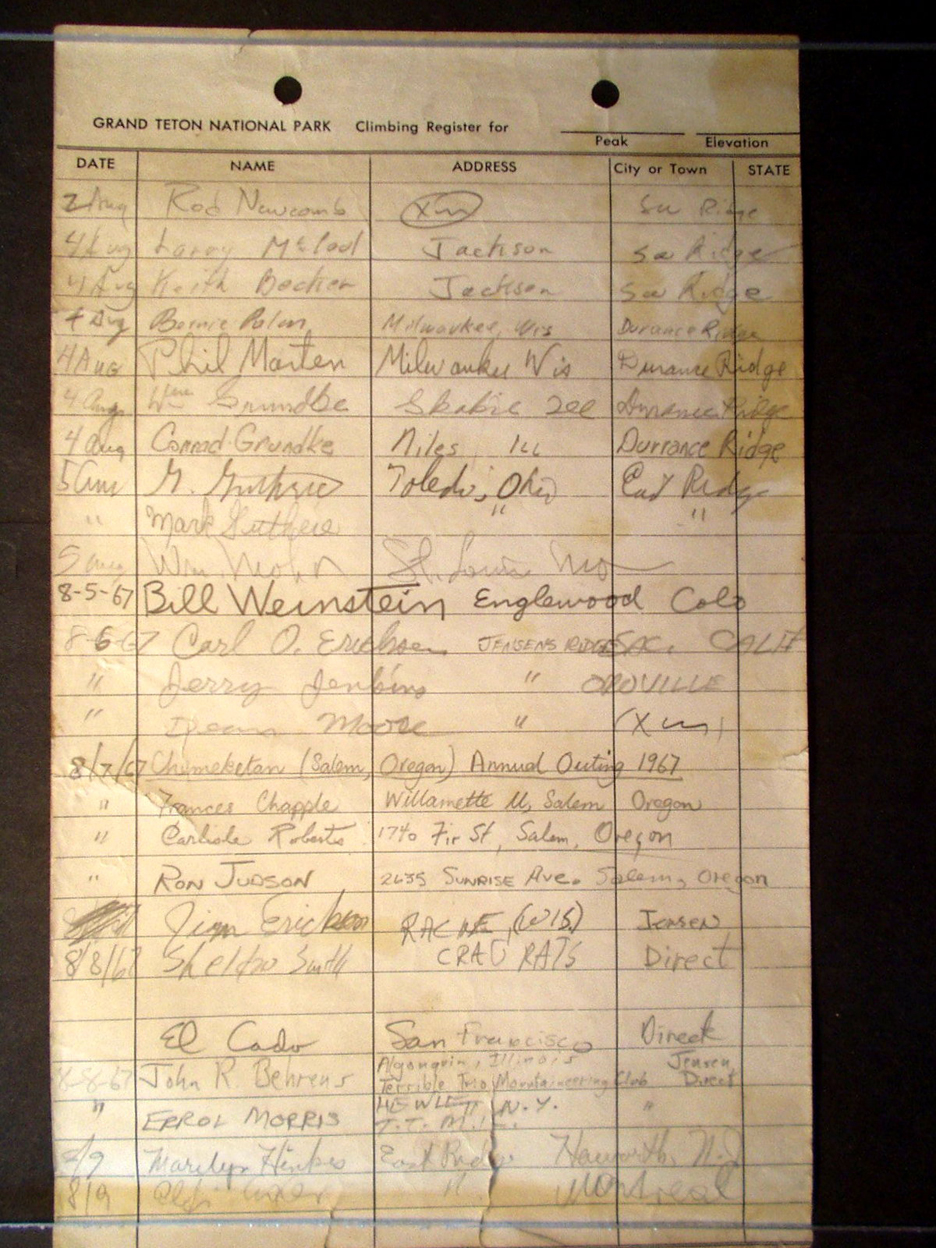 GRAND TETON NATIONAL PARK Climbing Register for
Peak Elevation
DATE NAME ADDRESS City or Town STATE
2 Aug Rod Newcomb Ridge
4 Aug Larry McLoud Jackson Ridge
4 Aug Keith Becker Jackson Ridge
4 Aug Bernie Milwaukee, Wis Durance Ridge
4 Aug Phil Marten Milwaukee Wis Durance Ridge
4 Aug Durance Ridge
4 Aug Conrad Grundke Niles Ill Durrance Ridge
G. Guthrie Toledo, Ohio East Ridge
" Mark Guthrie " "
5 Aug Wm St. Louis Mo
8-5-67 Bill Weinstein Englewood Colo
8-6-67 Carl O. Erichsen JENSENS RIDGE SAC. CALIF
" Jerry Jenkins " OROVILLE
" Dean Moore "
8/7/67 Chemeketan (Salem, Oregon) Annual Outing 1967
" Frances Chapple Willamette U, Salem Oregon
" Carlisle Roberts 1740 Fir St, Salem, Oregon
" RON JUDSON 2635 SUNRISE AVE. Salem, Oregon
Jim Erickson RACINE, (WIS) JENSEN
8/8/67 Sheldon Smith CRAG RATS Direct
El Cado San Francisco Direct
Algonquin, Illinois Jensen
8-8-67 John R. Behrens Terrible Trio Mountaineering Club Direct
HEWLETT, N.Y.
" ERROL MORRIS T.T. M.C. "
8/9 Marilyn East Ridge Haworth, N.J
8/9 " Montreal